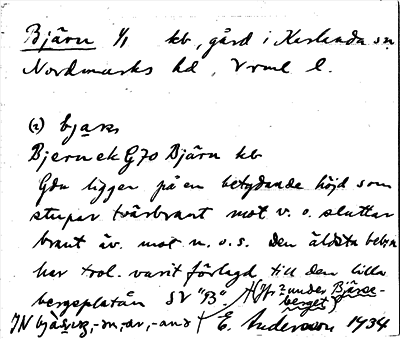 Bjärn 1/1 kb, gård i Karlanda sn
Nordmarks hd, Vrml l.
(2) bjaɳ
Bjernek G70 Bjärn kb
Gdn ligger på en betydande höjd som
stupar tvärbrant mot v. o. sluttar
brant äv. mot n. o. s. Den äldsta bebyn
har trol. varit förlagd till den lilla
bergsplatån SV "B". (Jfr under Bjärse-
berget)
E. Andersson 1934